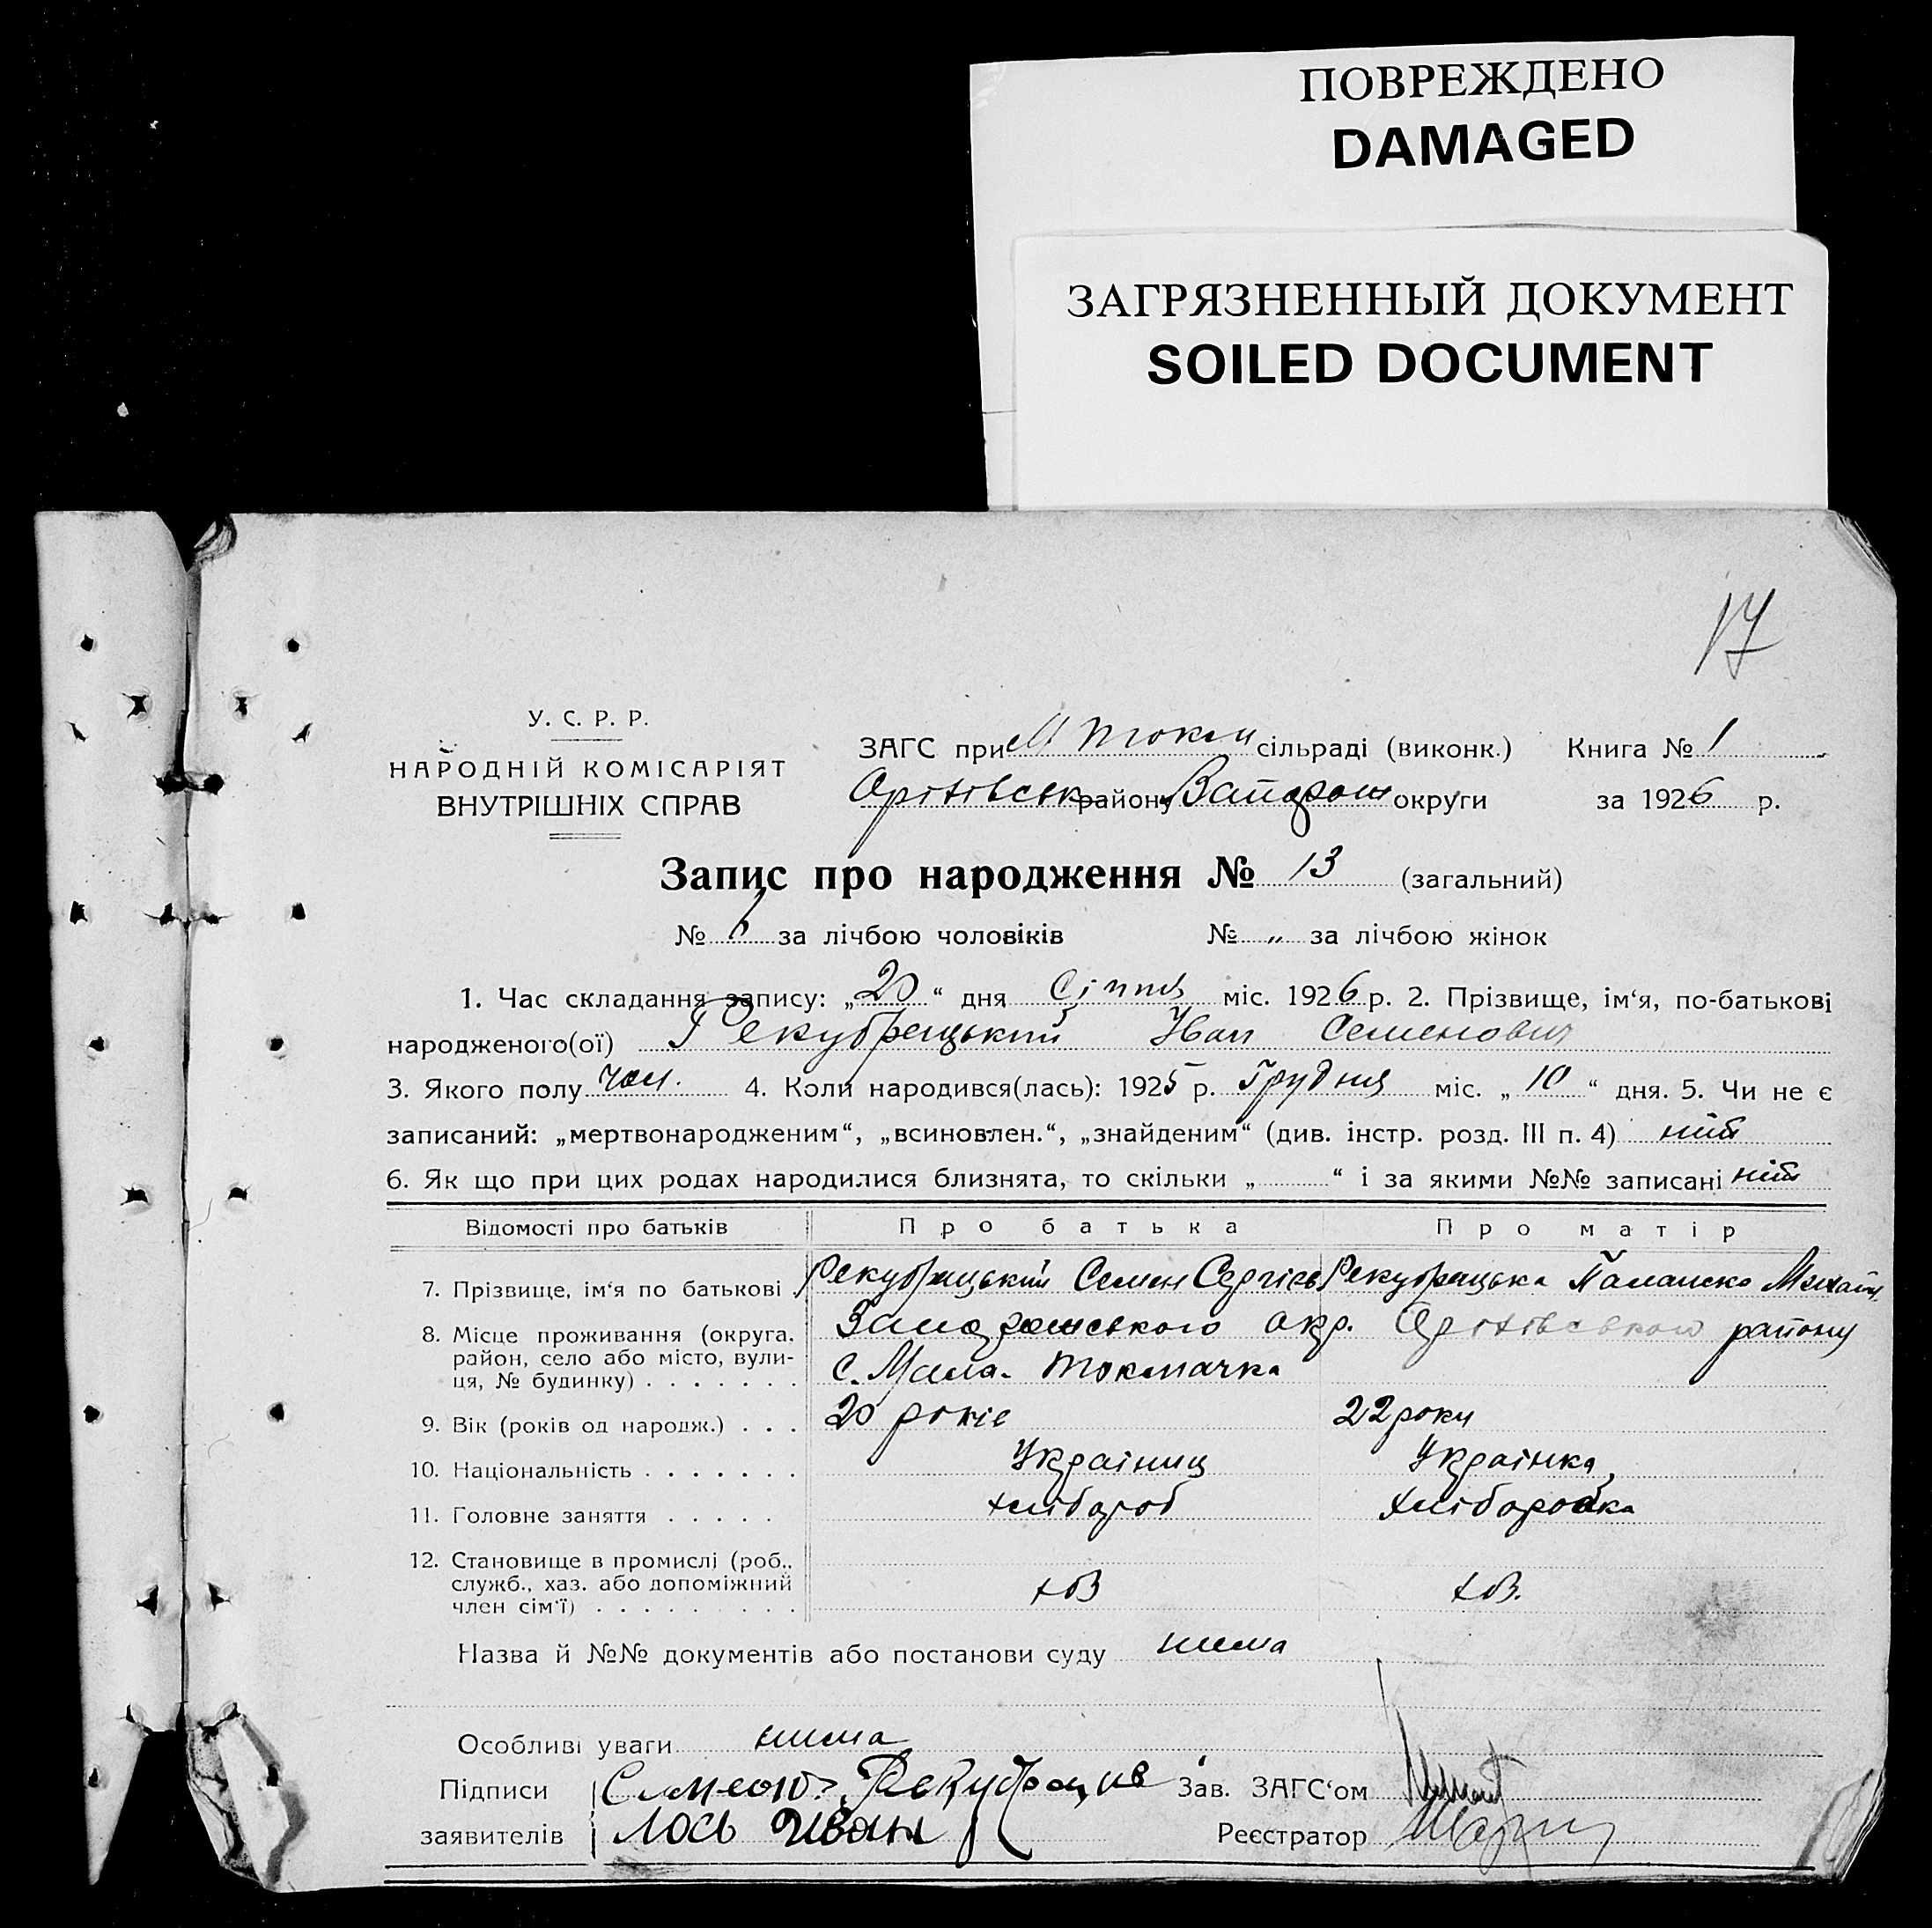 ПОВРЕЖДЕНО
DAMAGED
ЗАГРЯЗНЕННЫЙ ДОКУМЕНТ
SOILED DOCUMENT
17
У. С. Р. Р.
НАРОДНІЙ КОМІСАРІЯТ
ВНУТРІШНІХ СПРАВ
ЗАГС при М Токм сільраді (виконк.) Книга № 1
Оріхівськ району округи за 1926 р.
Запис про народження № 13 (загальний)
№ 6 за лічбою чоловіків № „ за лічбою жінок
1. Час складання запису: „20“ дня Січня міс. 1926 р. 2. Прізвище, ім‘я, по-батькові
народженого(ої) Рекубрацький Иван Семенович
3. Якого полу чол. 4. Коли народився(лась): 1925 р. Грудня міс. „10“ дня. 5. Чи не є
записаний: „мертвонародженим“, „всиновлен.“, „знайденим“ (див. інстр. розд. III п. 4) ніт
6. Як що при цих родах народилися близнята, то скільки „ “ і за якими №№ записані ніт
Відомості про батьків Про батька Про матір
7. Прізвище, ім‘я по батькові Рекубрацький Семен Сергієв Рекубрацька
8. Місце проживання (округа, район, село або місто, вулиця, № будинку) Запорожського окр. Оріхівського району
с. Мала-Токмачка
9. Вік (років од народж.) 20 років 22 роки
10. Національність Українец Українка
11. Головне заняття хлібороб хліборобка
12. Становище в промислі (роб., служб., хаз. або допоміжний член сім‘ї)
Назва й №№ документів або постанови суду нима
Особливі уваги нима
Підписи Зав. ЗАГС‘ом
заявителів Лось Иван Реєстратор